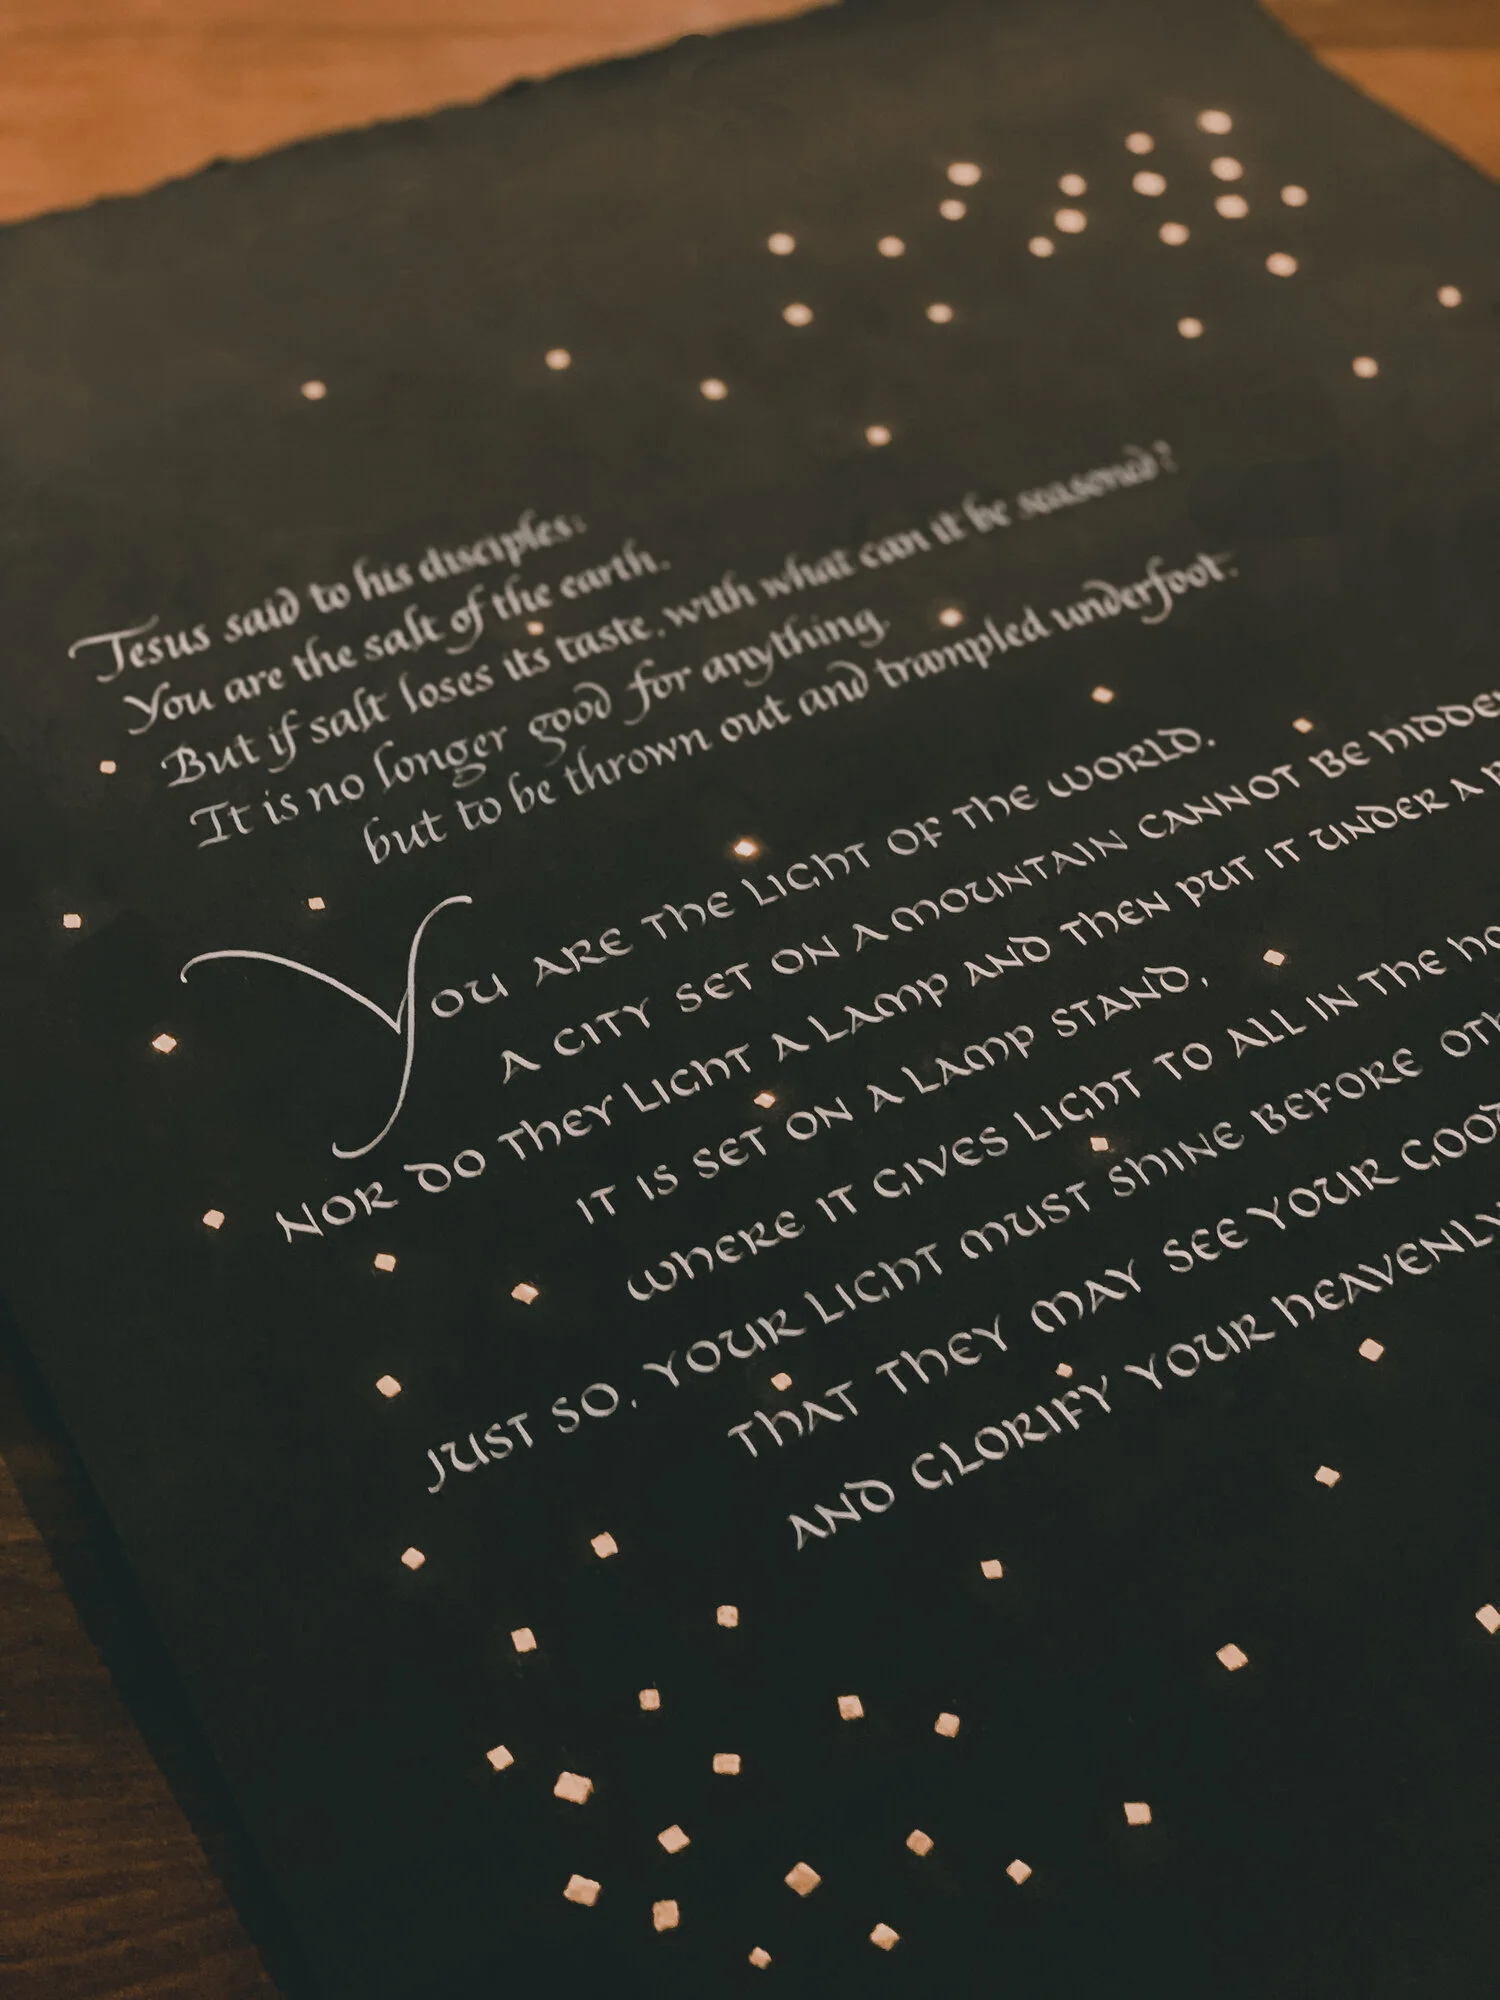 Jesus said to his disciples:
You are the salt of the earth.
But if salt loses its taste, with what can it be seasoned?
It is no longer good for anything
but to be thrown out and trampled underfoot.
YOU ARE THE LIGHT OF THE WORLD.
A CITY SET ON A MOUNTAIN CANNOT BE HIDDEN
NOR DO THEY LIGHT A LAMP AND THEN PUT IT UNDER A
IT IS SET ON A LAMP STAND,
WHERE IT GIVES LIGHT TO ALL IN THE
JUST SO, YOUR LIGHT MUST SHINE BEFORE
THAT THEY MAY SEE YOUR
AND GLORIFY YOUR HEAVENLY